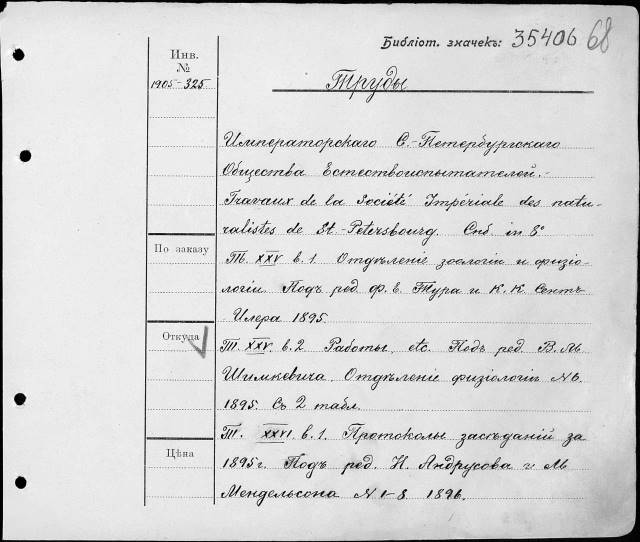 Библіот. значекъ: 35406 68
Инв.
№
1905-325
Труды
Императорскаго С.-Петербургскаго
Общества Естествоиспытателей.-
Travaux de la Société Impériale des natu-
ralistes de St.-Petersbourg. Спб. in 8°
По заказу
Т. XXV в. 1 Отдѣленіе зоологіи и физіо-
логіи. Подъ ред. Ф. В. и К. К. Сентъ
Илера 1895.
Откуда
Т. XXV. в. 2 Работы. etc. Подъ ред. В. М
Шимкевича. Отдѣленіе физіологіи №
1895. Съ 2 табл.
Цѣна
Т. XXVI. в. 1. Протоколы засѣданій за
1895 г. Подъ ред. Н. Андрусова и М
Мендельсона N 1-8 1896.